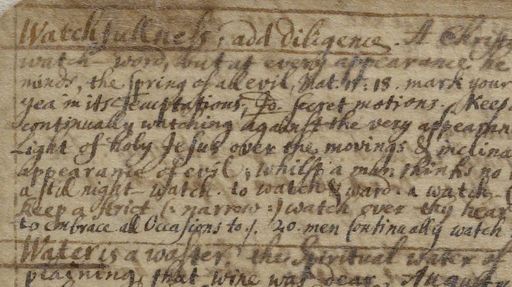 Watchfullness, add diligence. A Christ
watch word, but at every appearance he
minds, the spring of all evil, Mat. 15. 18. mark your
yea in its temptations, To secret motions. Keep
continually watching against the very appearan
Light of holy Jesus over the movings & inclina
appearance of evil, whilst a man thinks no
a still night watch. to watch & ward. a watch
Keep a strict (: narrow :) watch over thy hear
to embrace all Occasions to 20. men continually watch
Water is a waster, the Spiritual water of
plaining, that wine was dear, August